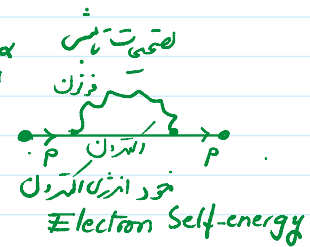 تصحیحات تابشی
α
فوزون
الکترون
p p
خود انرژی الکترون
Electron Self-energy